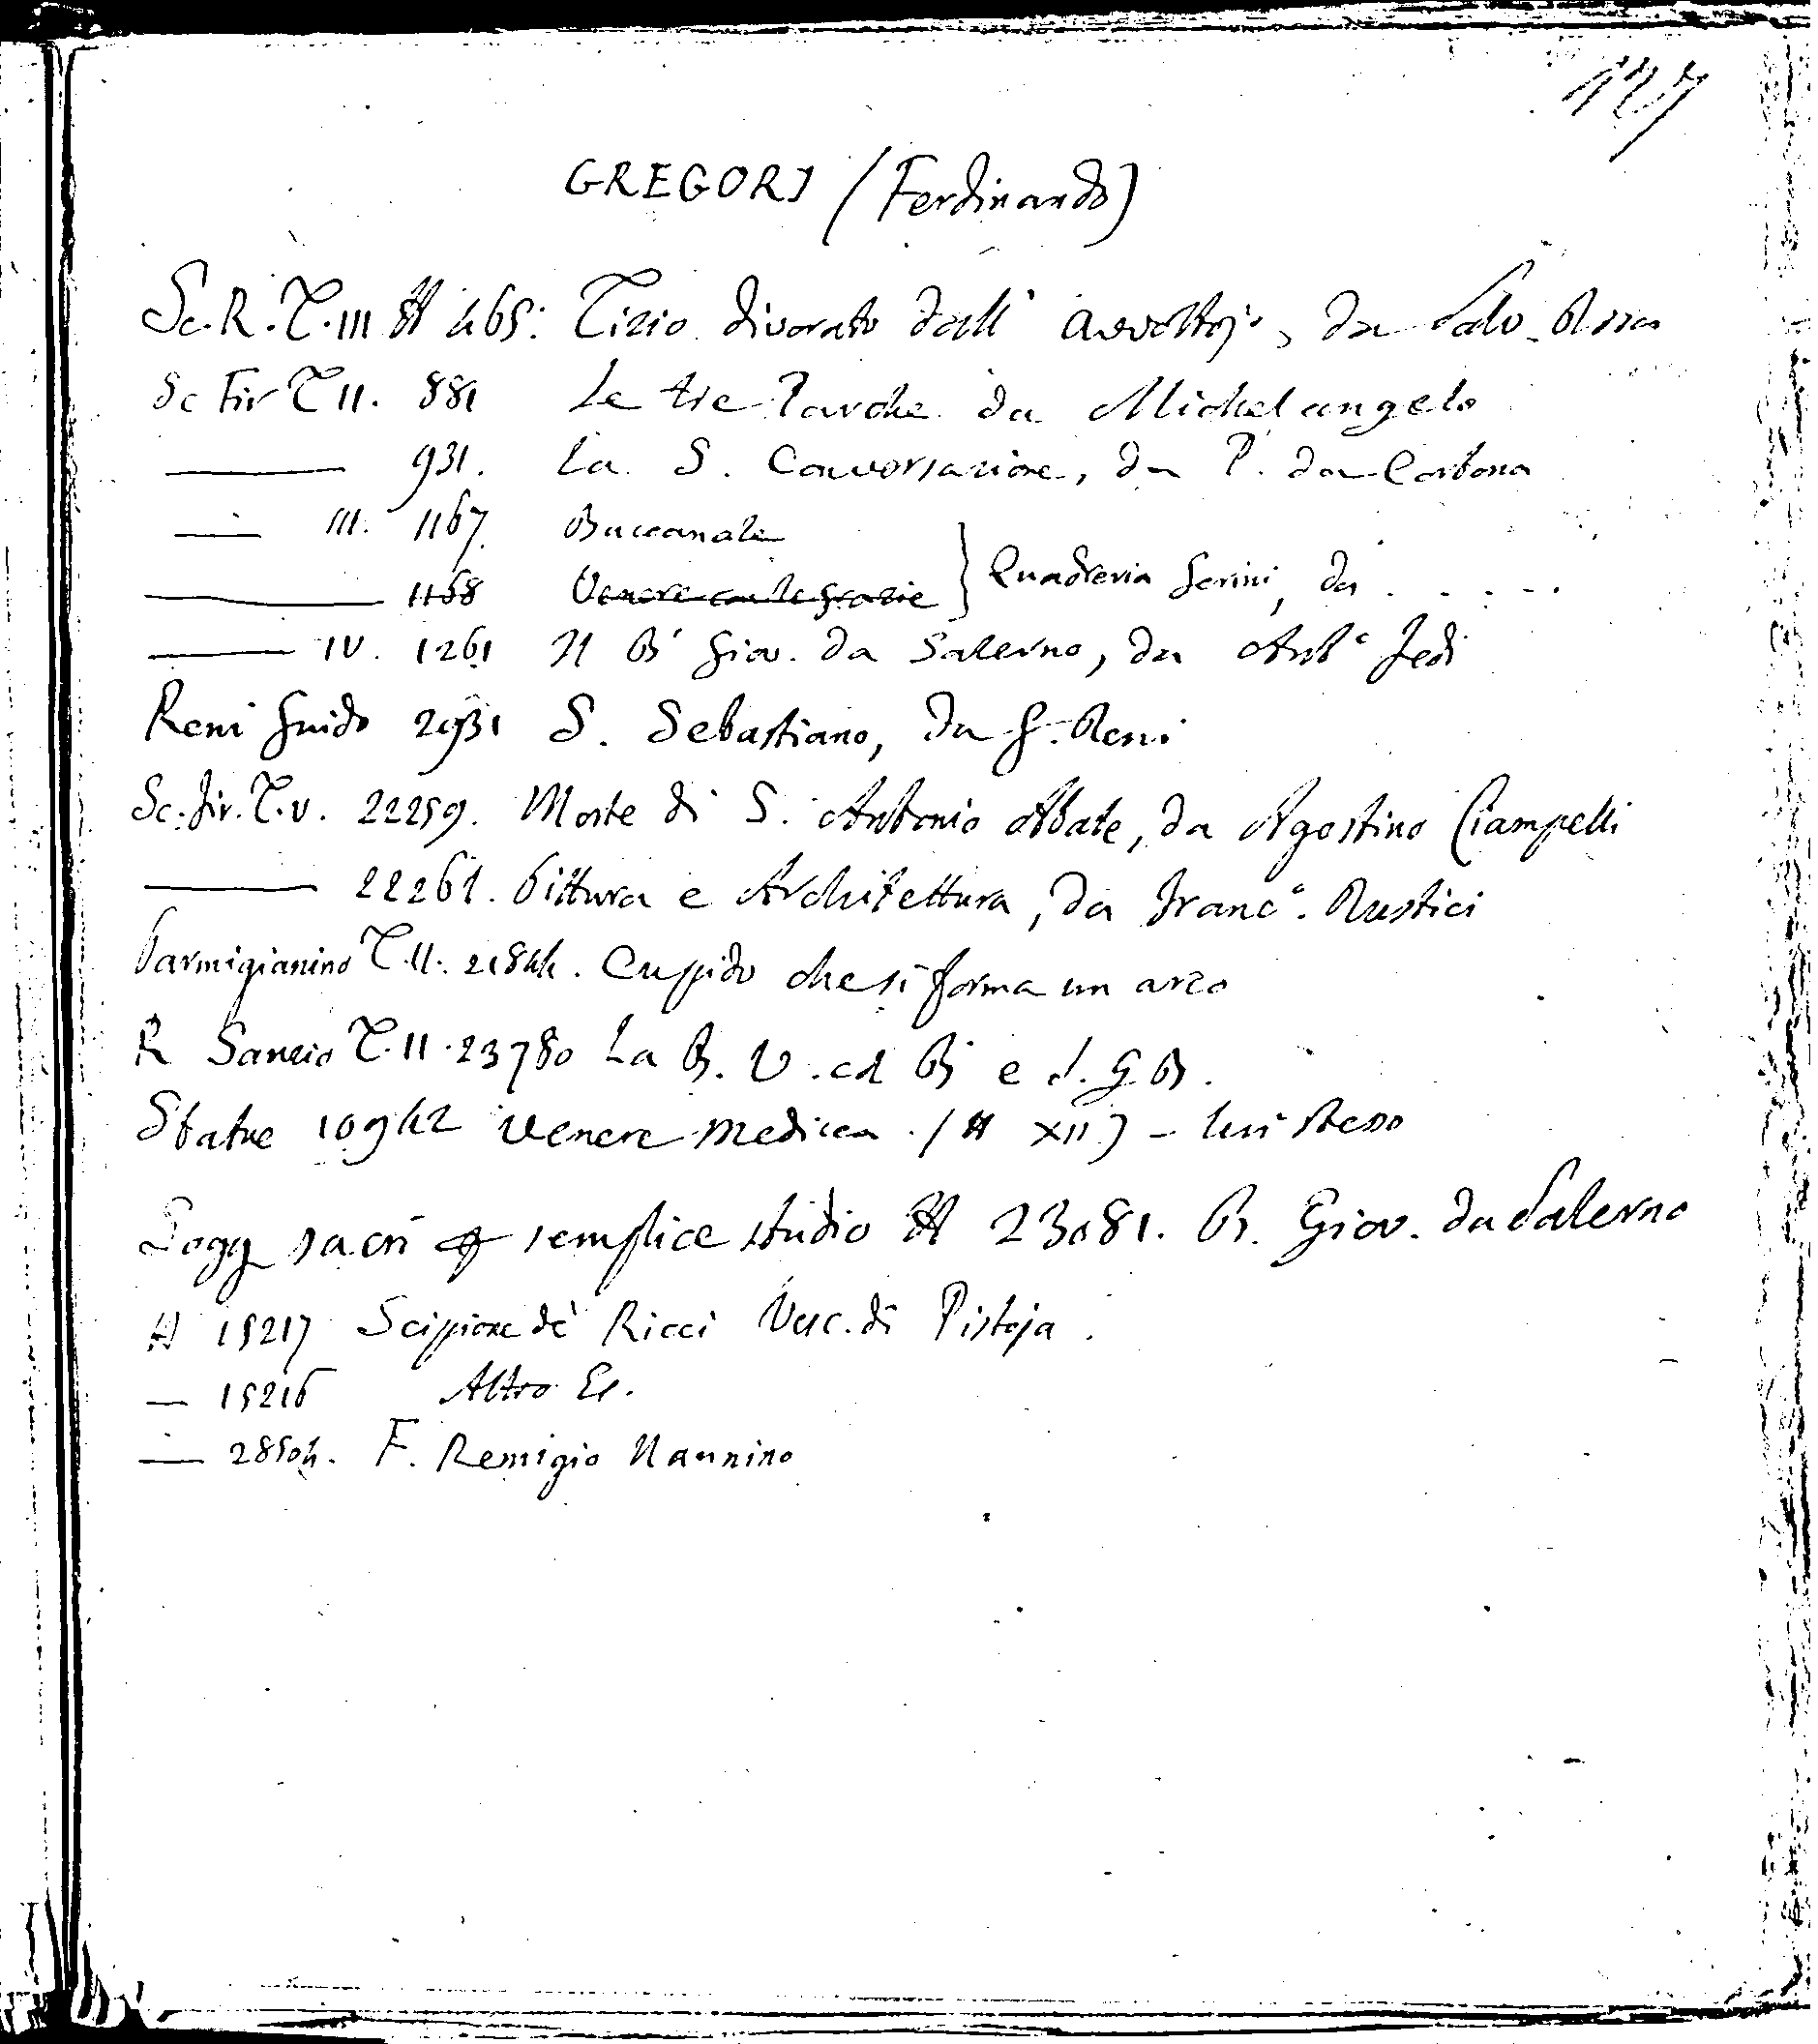 127
GREGORJ (Ferdinando)
Sc. R. T. III N 465. Tizio divorato dall' avvoltojo, da Salv. Rosa
Sc Fir T II. 881 Le tre Parche da Michelangelo
——— 931. La S. Conversazione, da P. da Cortona
—— III. 1167. Baccanale
——— 1168 Venere con le Grazie } Quadreria Gerini, da . . . . .
——— IV. 1261 Il B. Giov. da Salerno, da Ant.°
Reni Guido 2931 S. Sebastiano, da G. Reni
Sc. Fir. T. V. 22259. Morte di S. Antonio Abate, da Agostino Ciampelli
——— 22261. Pittura e Architettura, da Franc°. Rustici
Parmigianino T. II. 21844. Cupido che si forma un arco
R Sanzio T. II. 23780 La B. V. col B. e S. G. B.
Statue 10942 Venere Medicea (N XII) - lui stesso
Sogg sacri semplice studio N 23081. B. Giov. da Salerno
N 15217 Scipione de' Ricci Vesc. di Pistoja.
— 15216 Altro Es.
— 28504. F. Remigio Nannino